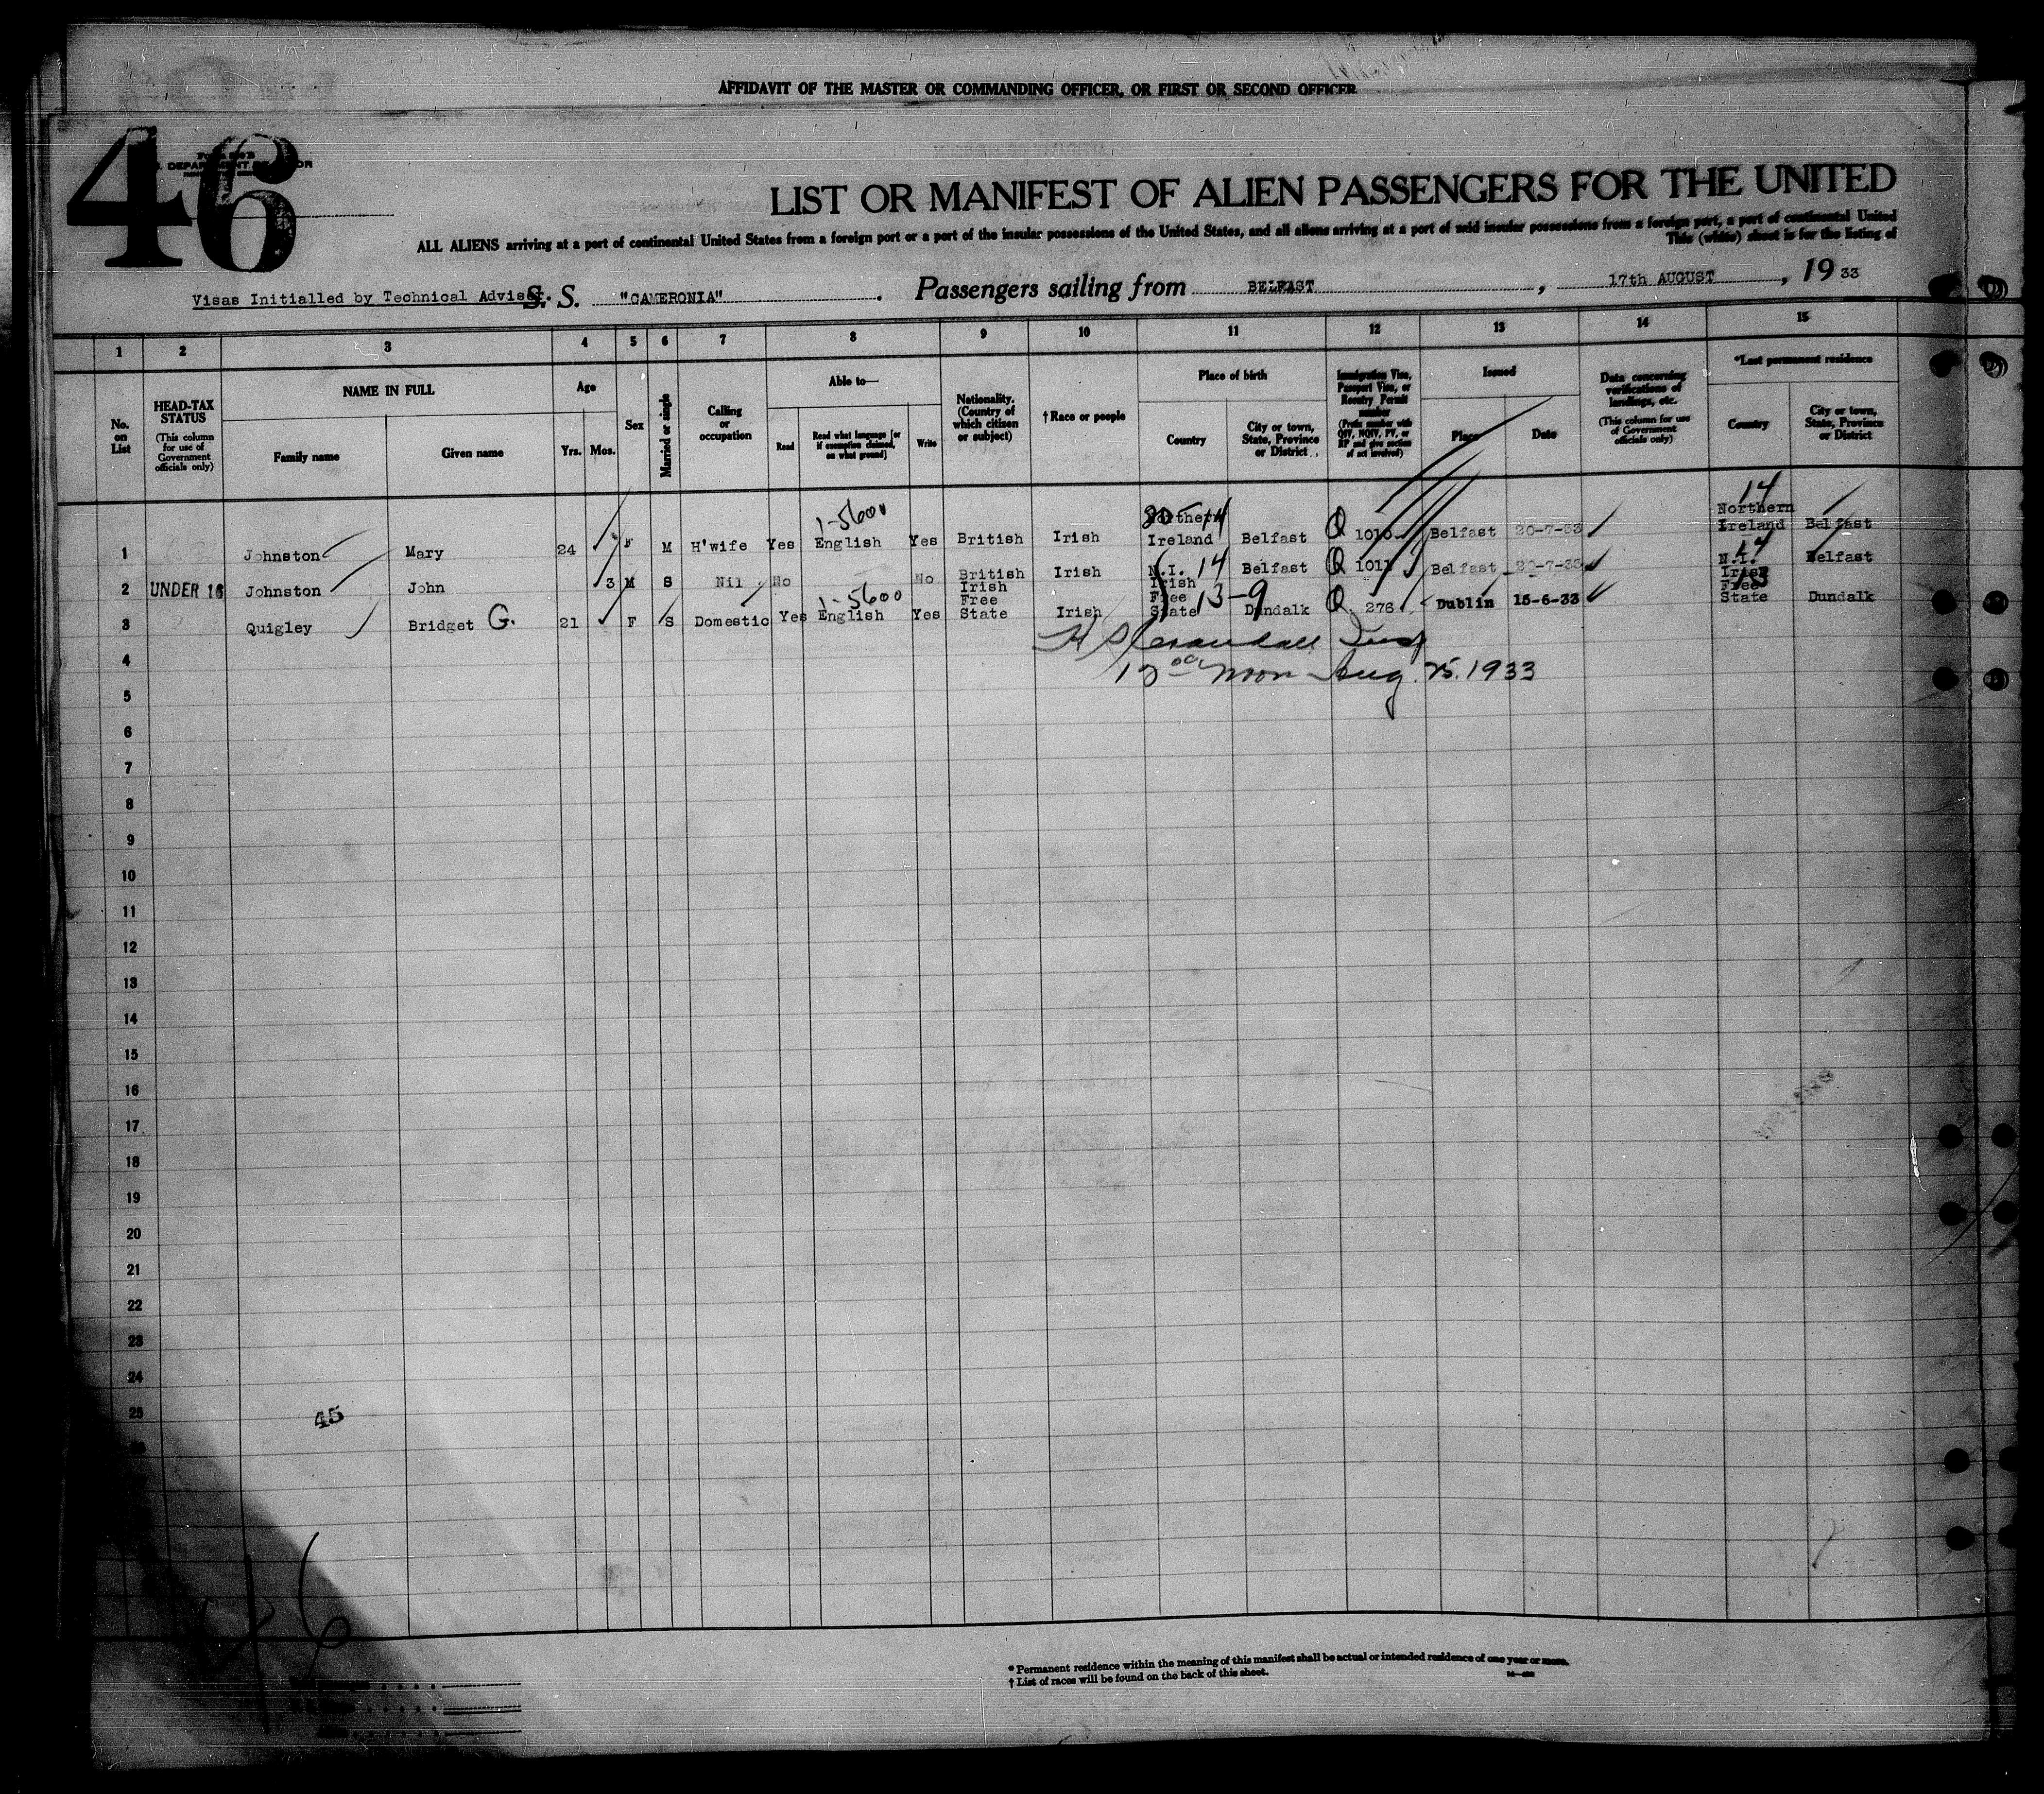 AFFIDAVIT OF THE MASTER OR COMMANDING OFFICER, OR FIRST OR SECOND OFFICER
46
LIST OR MANIFEST OF ALIEN PASSENGERS FOR THE UNITED
ALL ALIENS arriving at a port of continental United States from a foreign port or a port of the insular possessions of the United States, and all aliens arriving at a port of said insular possessions from a foreign port, a port of continental United
This (white) sheet is for the listing of
Visas Initialled by Technical Adviser. S. S. "CAMERONIA" . Passengers sailing from BELFAST , 17th AUGUST , 19 33
1 2 3 4 5 6 7 8 9 10 11 12 13 14 15
No. on List
HEAD-TAX STATUS (This column for use of Government officials only)
NAME IN FULL
Family name Given name
Age
Yrs. Mos.
Sex
Married or single
Calling or occupation
Able to—
Read Read what language [or if exemption claimed, on what ground] Write
Nationality. (Country of which citizen or subject)
† Race or people
Place of birth
Country City or town, State, Province or District
Immigration Visa, Passport Visa, or Reentry Permit number (Prefix number with QIV, NQIV, PV, or RP and give section of act involved)
Issued
Place Date
Data concerning verifications of landings, etc. (This column for use of Government officials only)
*Last permanent residence
Country City or town, State, Province or District
1 Johnston Mary 24 F M H'wife Yes 1-5600 English Yes British Irish Northern Ireland 14 Belfast Q 1010 Belfast 20-7-33 14 Northern Ireland Belfast
2 UNDER 16 Johnston John 3 M S Nil No No British Irish N.I. 14 Belfast Q 1011 Belfast 20-7-33 14 N.I. Belfast
3 Quigley Bridget G. 21 F S Domestic Yes 1-5600 English Yes Irish Free State Irish Irish Free State 13-9 Dundalk Q 276 Dublin 15-6-33 13 Irish Free State Dundalk
4
Noon Aug. 25. 1933
5
6
7
8
9
10
11
12
13
14
15
16
17
18
19
20
21
22
23
24
25
45
46
* Permanent residence within the meaning of this manifest shall be actual or intended residence of one year or more.
† List of races will be found on the back of this sheet.